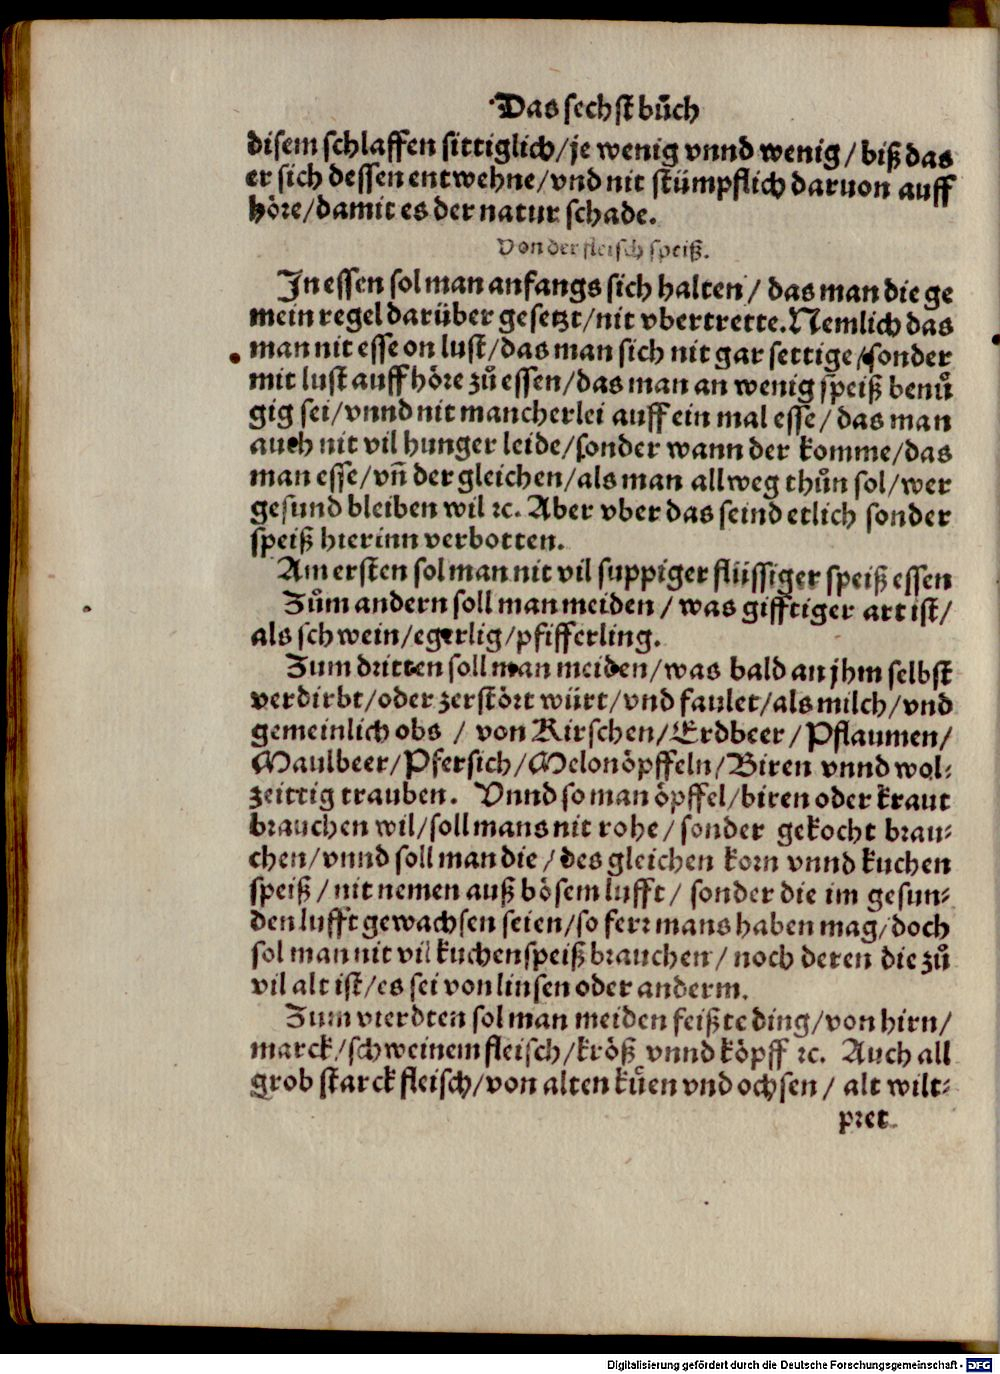 Das sechst bůch
disem schlaffen sittiglich/je wenig vnnd wenig/ biß das
er sich dessen entwehne/vnd nit stümpflich daruon auff
höre/damit es der natur schade.
Von der fleisch speiß.
In essen sol man anfangs sich halten/ das man die ge
mein regel darüber gesetzt/nit vbertrette. Nemlich das
man nit esse on lust/das man sich nit gar settige/sonder
mit lust auff höre zů essen/das man an wenig speiß benů
gig sei/vnnd nit mancherlei auff ein mal esse/ das man
auch nit vil hunger leide/sonder wann der komme/das
man esse/vñ der gleichen/als man allweg thůn sol/wer
gesund bleiben wil ꝛc. Aber vber das seind etlich sonder
speiß hierinn verbotten.
Am ersten sol man nit vil suppiger flüssiger speiß essen
Zům andern soll man meiden / was gifftiger art ist/
als schwein/egerlig/pfifferling.
Zum dritten soll man meiden/was bald an jhm selbst
verdirbt/oder zerstört würt/vnd faulet/als milch/vnd
gemeinlich obs / von Kirschen/Erdbeer/Pflaumen/
Maulbeer/Pfersich/Melonöpffeln/Biren vnnd wol⸗
zeittig trauben. Vnnd so man öpffel/biren oder kraut
brauchen wil/soll mans nit rohe/ sonder gekocht brau⸗
chen/vnnd soll man die/des gleichen korn vnnd kuchen
speiß/nit nemen auß bösem lufft/ sonder die im gesun⸗
den lufft gewachsen seien/so ferr mans haben mag/doch
sol man nit vil kuchenspeiß brauchen/ noch deren die zů
vil alt ist/es sei von linsen oder anderm.
Zum vierdten sol man meiden feißte ding/von hirn/
marck/schweinem fleisch/kröß vnnd köpff ꝛc. Auch all
grob starck fleisch/von alten kůen vnd ochsen/ alt wilt⸗
pret
Digitalisierung gefördert durch die Deutsche Forschungsgemeinschaft - DFG